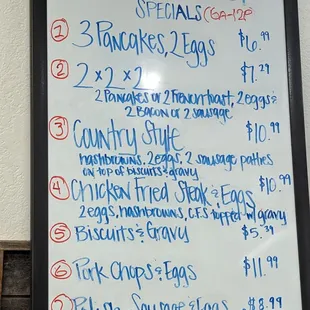 SPECIALS (6A-12P
1 3 Pancakes, 2 Eggs $6.99
2 2 x 2 x 2 $7.29
2 Pancakes or 2 French toast, 2 eggs &
2 Bacon or 2 sausage
3 Country Style $10.99
hashbrowns, 2 eggs, 2 sausage patties
on top of biscuits & gravy
4 Chicken Fried Steak & Eggs $10.99
2 eggs, hashbrowns, CFS topped w/ gravy
5 Biscuits & Gravy $5.39
6 Pork Chops & Eggs $11.99
7 Polish Sausage & Eggs $8.99